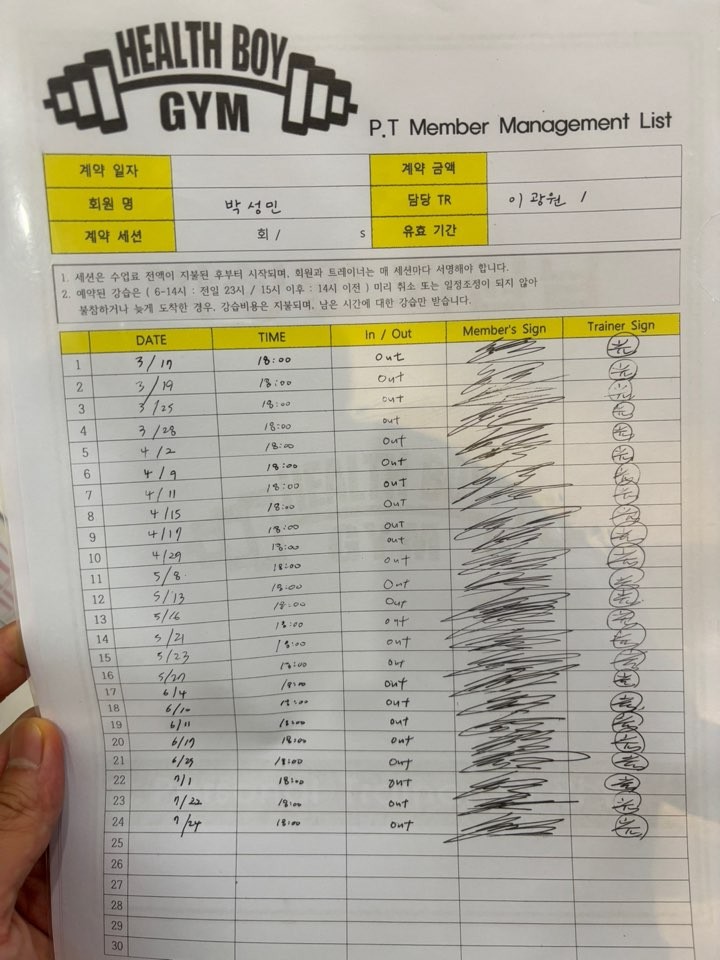 HEALTH BOY
GYM
P.T Member Management List
계약 일자 계약 금액
회원 명 박성민 담당 TR 이광원 /
계약 세션 회 / s 유효 기간
1. 세션은 수업료 전액이 지불된 후부터 시작되며, 회원과 트레이너는 매 세션마다 서명해야 합니다.
2. 예약된 강습은 ( 6-14시 : 전일 23시 / 15시 이후 : 14시 이전 ) 미리 취소 또는 일정조정이 되지 않아
불참하거나 늦게 도착한 경우, 강습비용은 지불되며, 남은 시간에 대한 강습만 받습니다.
DATE TIME In / Out Member's Sign Trainer Sign
1 3/17 18:00 out
2 3/19 18:00 out
3 3/25 18:00 out
4 3/28 18:00 out
5 4/2 18:00 out
6 4/9 18:00 out
7 4/11 18:00 out
8 4/15 18:00 out
9 4/17 18:00 out
10 4/29 18:00 out
11 5/8 18:00 out
12 5/13 18:00 out
13 5/16 18:00 out
14 5/21 18:00 out
15 5/23 18:00 out
16 5/27 18:00 out
17 6/4 18:00 out
18 6/10 18:00 out
19 6/11 18:00 out
20 6/17 18:00 out
21 6/25 18:00 out
22 7/1 18:00 out
23 7/22 18:00 out
24 7/24 18:00 out
25
26
27
28
29
30